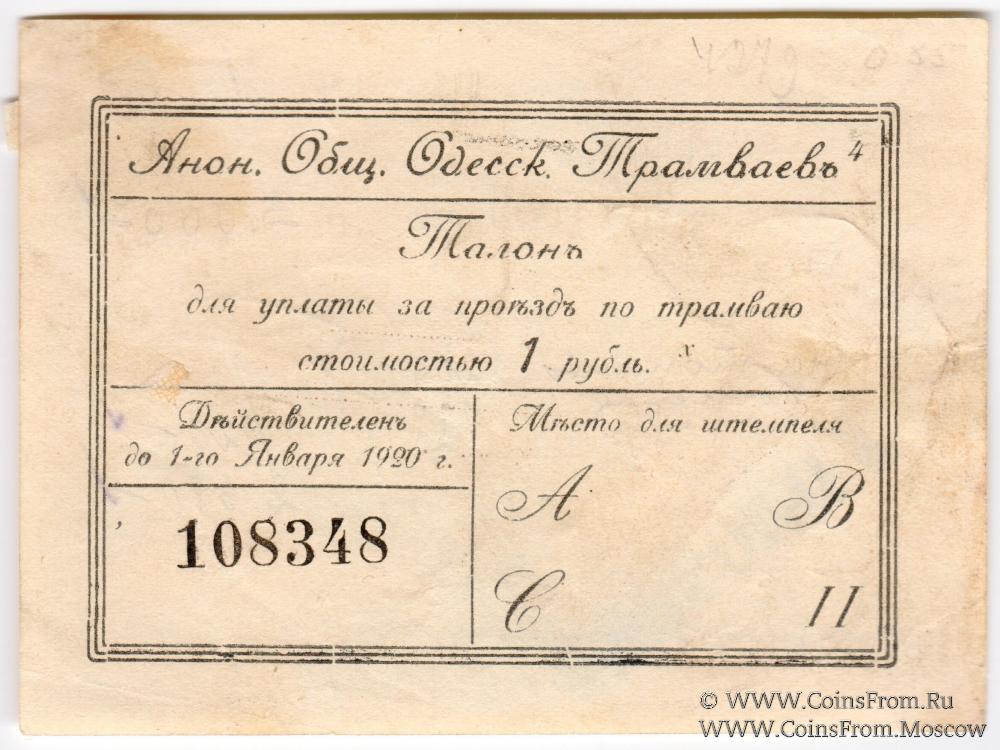 4279 0 25
Анон. Общ. Одесск. Трамваевъ 4
Талонъ
для уплаты за проѣздъ по трамваю
стоимостью 1 рубль. х
Дѣйствителенъ
до 1-го Января 1920 г.
108348
Мѣсто для штемпеля
А В
С II
© WWW.CoinsFrom.Ru
WWW.CoinsFrom.Moscow